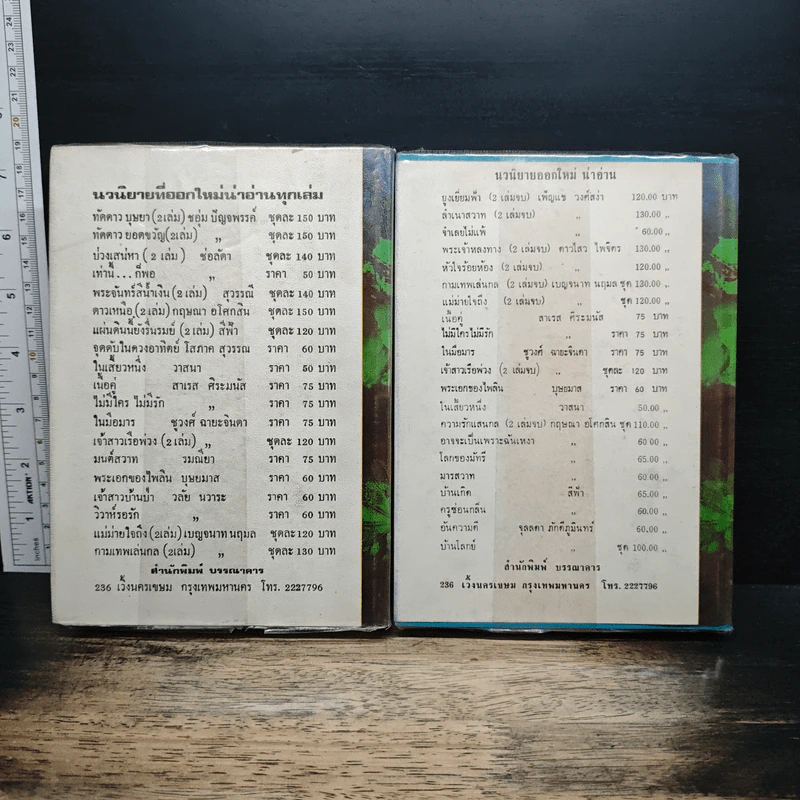 นวนิยายที่ออกใหม่น่าอ่านทุกเล่ม
ทัดดาว บุษยา (2 เล่ม) ชอุ่ม ปัญจพรรค์ ชุดละ 150 บาท
ทัดดาว ยอดขวัญ (2 เล่ม) ,, ชุดละ 150 บาท
บ่วงเสน่หา (2 เล่ม) ช่อลัดา ชุดละ 140 บาท
เท่านี้...ก็พอ ,, ราคา 50 บาท
พระจันทร์สีน้ำเงิน (2 เล่ม) สุวรรณี ชุดละ 140 บาท
ดาวเหนือ (2 เล่ม) กฤษณา อโศกสิน ชุดละ 150 บาท
แผ่นดินนี้ยังรื่นรมย์ (2 เล่ม) สีฟ้า ชุดละ 120 บาท
จุดดับในดวงอาทิตย์ โสภาค สุวรรณ ราคา 60 บาท
ในเสี้ยวหนึ่ง วาสนา ราคา 50 บาท
เนื้อคู่ สาเรส ศิระมนัส ราคา 75 บาท
ไม่มีใคร ไม่มีรัก ,, ราคา 75 บาท
ในมือมาร ชูวงศ์ ฉายะจินดา ราคา 75 บาท
เจ้าสาวเรือพ่วง (2 เล่ม) ,, ชุดละ 120 บาท
มนต์สวาท รมณียา ราคา 75 บาท
พระเอกของไพลิน บุษยมาส ราคา 60 บาท
เจ้าสาวบ้านป่า วลัย นวาระ ราคา 60 บาท
วิวาห์รอรัก ,, ราคา 60 บาท
แม่ม่ายใจถึง (2 เล่ม) เบญจนาท นฤมล ชุดละ 120 บาท
กามเทพเล่นกล (2 เล่ม) ,, ชุดละ 130 บาท
สำนักพิมพ์ บรรณาคาร
236 เวิ้งนครเขษม กรุงเทพมหานคร โทร. 2227796
นวนิยายออกใหม่ น่าอ่าน
ยูงเยี่ยมฟ้า (2 เล่มจบ) เพ็ญแข วงศ์สง่า 120.00 บาท
ลำเนาสวาท (2 เล่มจบ) ,, 130.00 ,,
จำเลยไม่แพ้ ,, 60.00 ,,
พระเจ้าหลงทาง (2 เล่มจบ) ดาวไสว ไพจิตร 130.00 ,,
หัวใจร้อยห้อง (2 เล่มจบ) ,, 120.00 ,,
กามเทพเล่นกล (2 เล่มจบ) เบญจนาท นฤมล ชุด 130.00 ,,
แม่ม่ายใจถึง (2 เล่มจบ) ,, ชุด 120.00 ,,
เนื้อคู่ สาเรส ศิระมนัส 75 บาท
ไม่มีใครไม่มีรัก ,, ราคา 75 บาท
ในมือมาร ชูวงศ์ ฉายะจินดา ราคา 75 บาท
เจ้าสาวเรือพ่วง (2 เล่มจบ) ,, ชุดละ 120 บาท
พระเอกของไพลิน บุษยมาส ราคา 60 บาท
ในเสี้ยวหนึ่ง วาสนา 50.00 ,,
ความรักแสนกล (2 เล่มจบ) กฤษณา อโศกสิน ชุด 110.00 ,,
อาจจะเป็นเพราะฉันเหงา ,, 60.00 ,,
โลกของมัทรี ,, 65.00 ,,
มารสวาท ,, 60.00 ,,
บ้านเกิด สีฟ้า 65.00 ,,
ครูซ่อนกลิ่น ,, 60.00 ,,
อันความดี จุลลดา ภักดีภูมินทร์ 60.00 ,,
บ้านโลกย์ ,, ชุด 100.00 ,,
สำนักพิมพ์ บรรณาคาร
236 เวิ้งนครเขษม กรุงเทพมหานคร โทร. 2227796